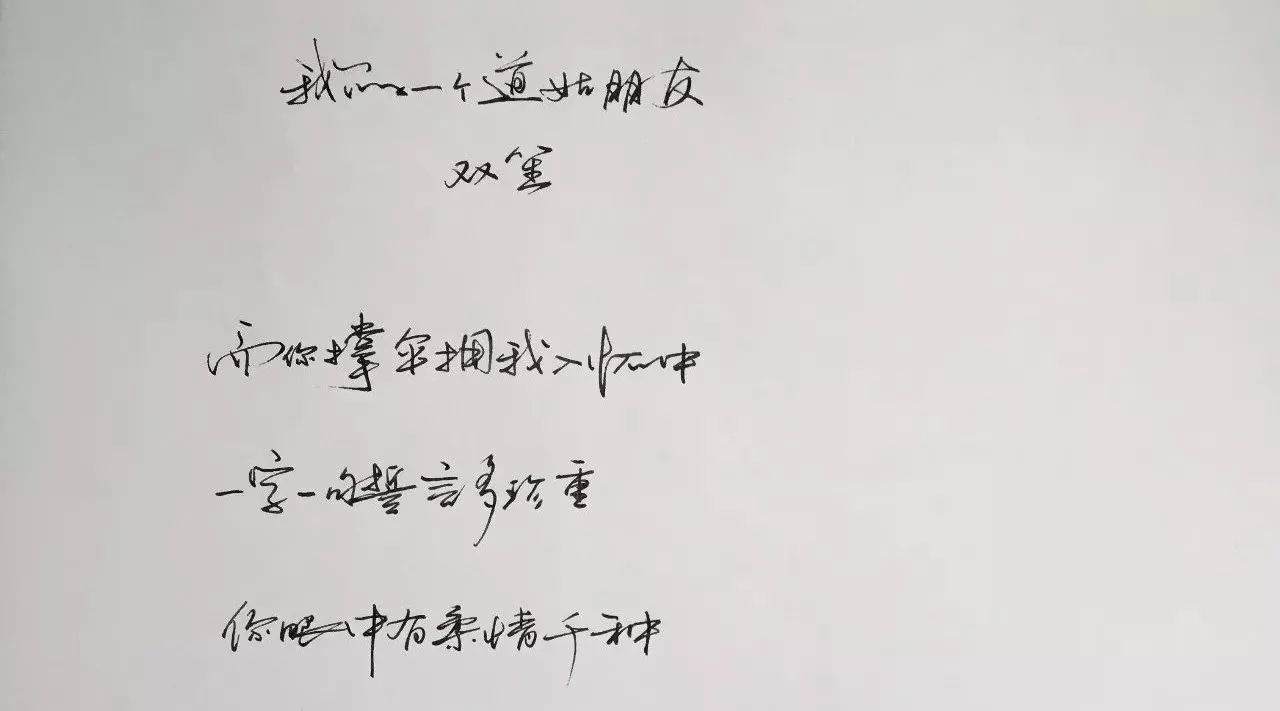 我的一个道姑朋友
双笙
而你撑伞拥我入怀中
一字一句誓言多珍重
你眼中有柔情千种